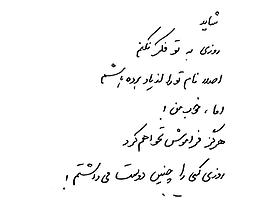 شاید
روزی به تو فکر نکنم
اصلا نام تو را از یاد برده باشم
اما، خوب من!
هرگز فراموش نخواهم کرد
روزی کسی را چنین دوست می داشتم!